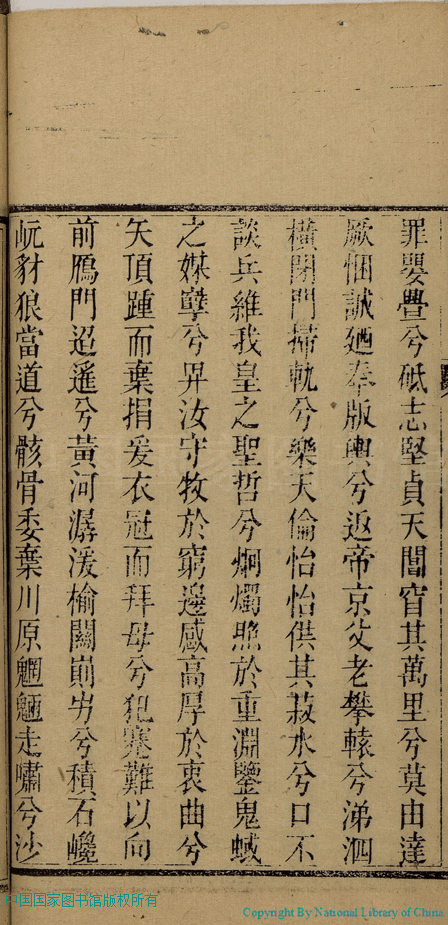 罪嬰疊兮砥志堅貞天閽窅其萬里兮莫由達
厥悃誠廼奉版輿兮返帝京父老攀轅兮涕泗
橫閉門掃軌兮樂天倫怡怡供其菽水兮口不
談兵維我皇之聖哲兮炯燭照於重淵鑒鬼蜮
之媒孽兮畀汝守牧於窮邊感高厚於衷曲兮
矢頂踵而棄捐爰衣冠而拜母兮犯蹇難以向
前鴈門迢遥兮黃河潺湲榆關崱屴兮積石巉
岏豺狼當道兮骸骨委棄川原魍魎走嘯兮沙
中国国家图书馆版权所有
Copyright By National Library of China